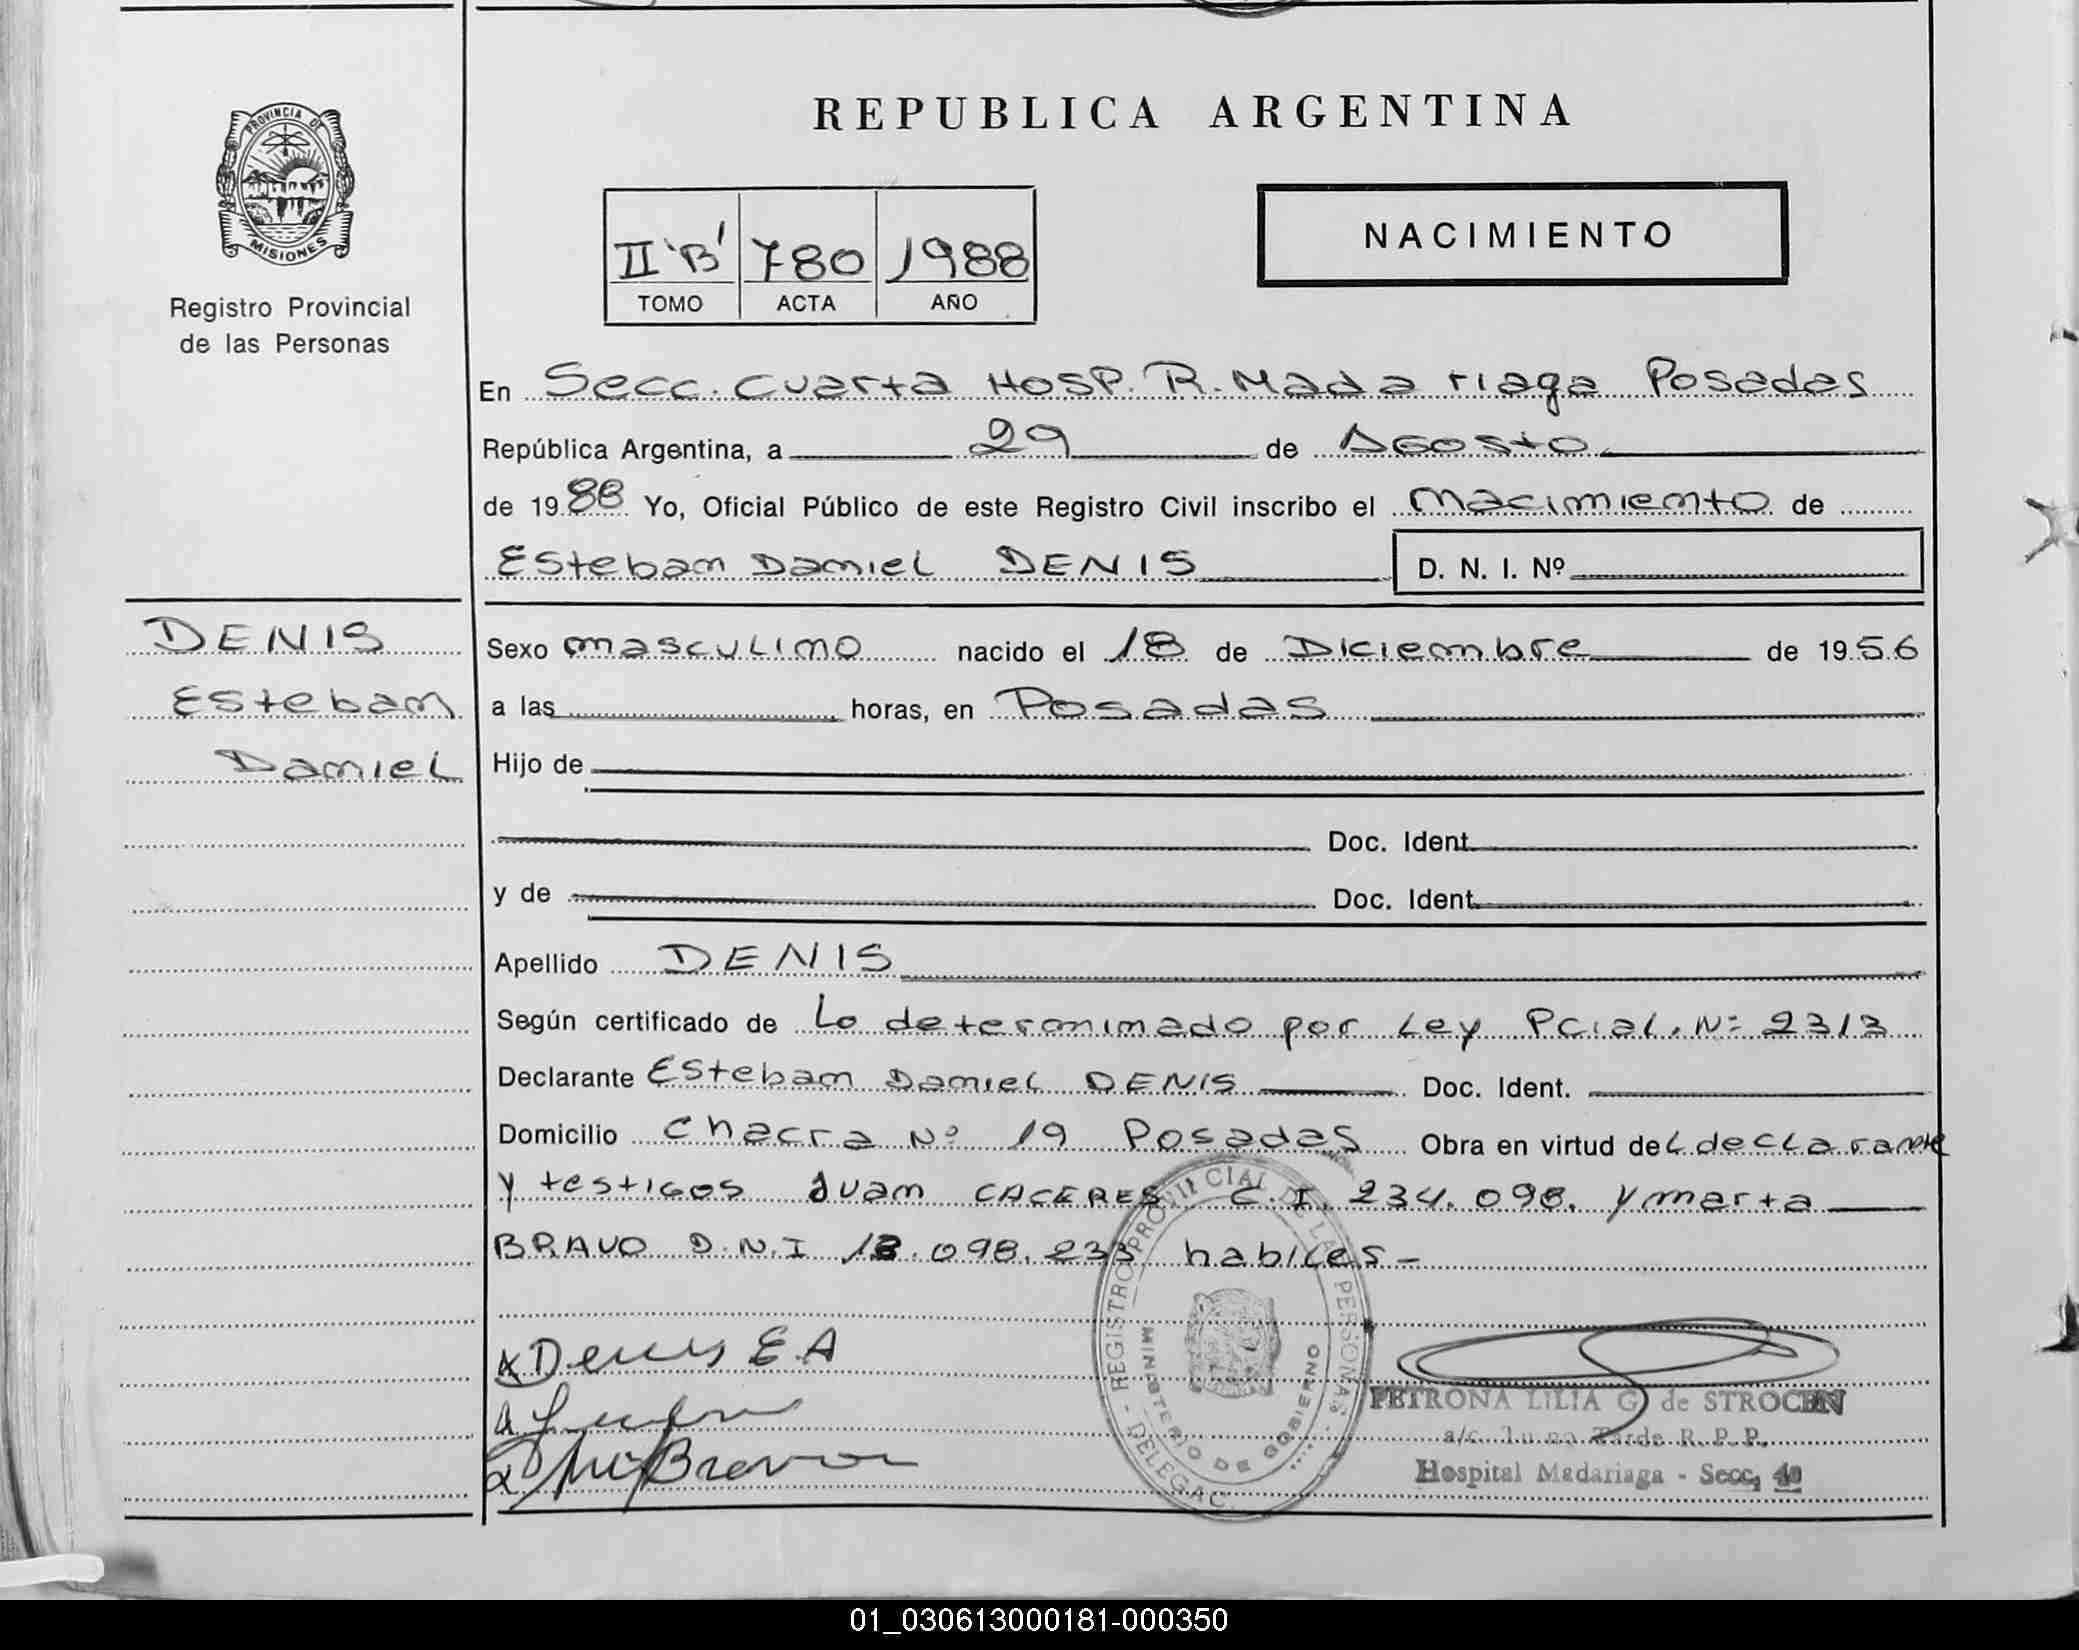 PROVINCIA DE
MISIONES
Registro Provincial
de las Personas
REPUBLICA ARGENTINA
II "B" 780 1988
TOMO ACTA AÑO
NACIMIENTO
En Secc. Cuarta Hosp. R. Madariaga Posadas
República Argentina, a 29 de Agosto
de 1988 Yo, Oficial Público de este Registro Civil inscribo el nacimiento de
Esteban Daniel DENIS D. N. I. Nº
DENIS
Esteban
Daniel
Sexo masculino nacido el 18 de Diciembre de 1956
a las horas, en Posadas
Hijo de
Doc. Ident.
y de Doc. Ident.
Apellido DENIS
Según certificado de Lo determinado por Ley Pcial. Nº 2313
Declarante Esteban Daniel DENIS Doc. Ident.
Domicilio Chacra Nº 19 Posadas Obra en virtud del declarante
y testigos Juan CACERES C.I. 234.098. y marta
BRAVO D.N.I 13.098.233 habiles-
Denis E.A
Bravo
REGISTRO PROVINCIAL DE LAS PERSONAS - DELEGAC.
MINISTERIO DE GOBIERNO
PETRONA LILIA G. de STROCEN
a/c. Turno Tarde R.P.P.
Hospital Madariaga - Secc. 4a
01_030613000181-000350